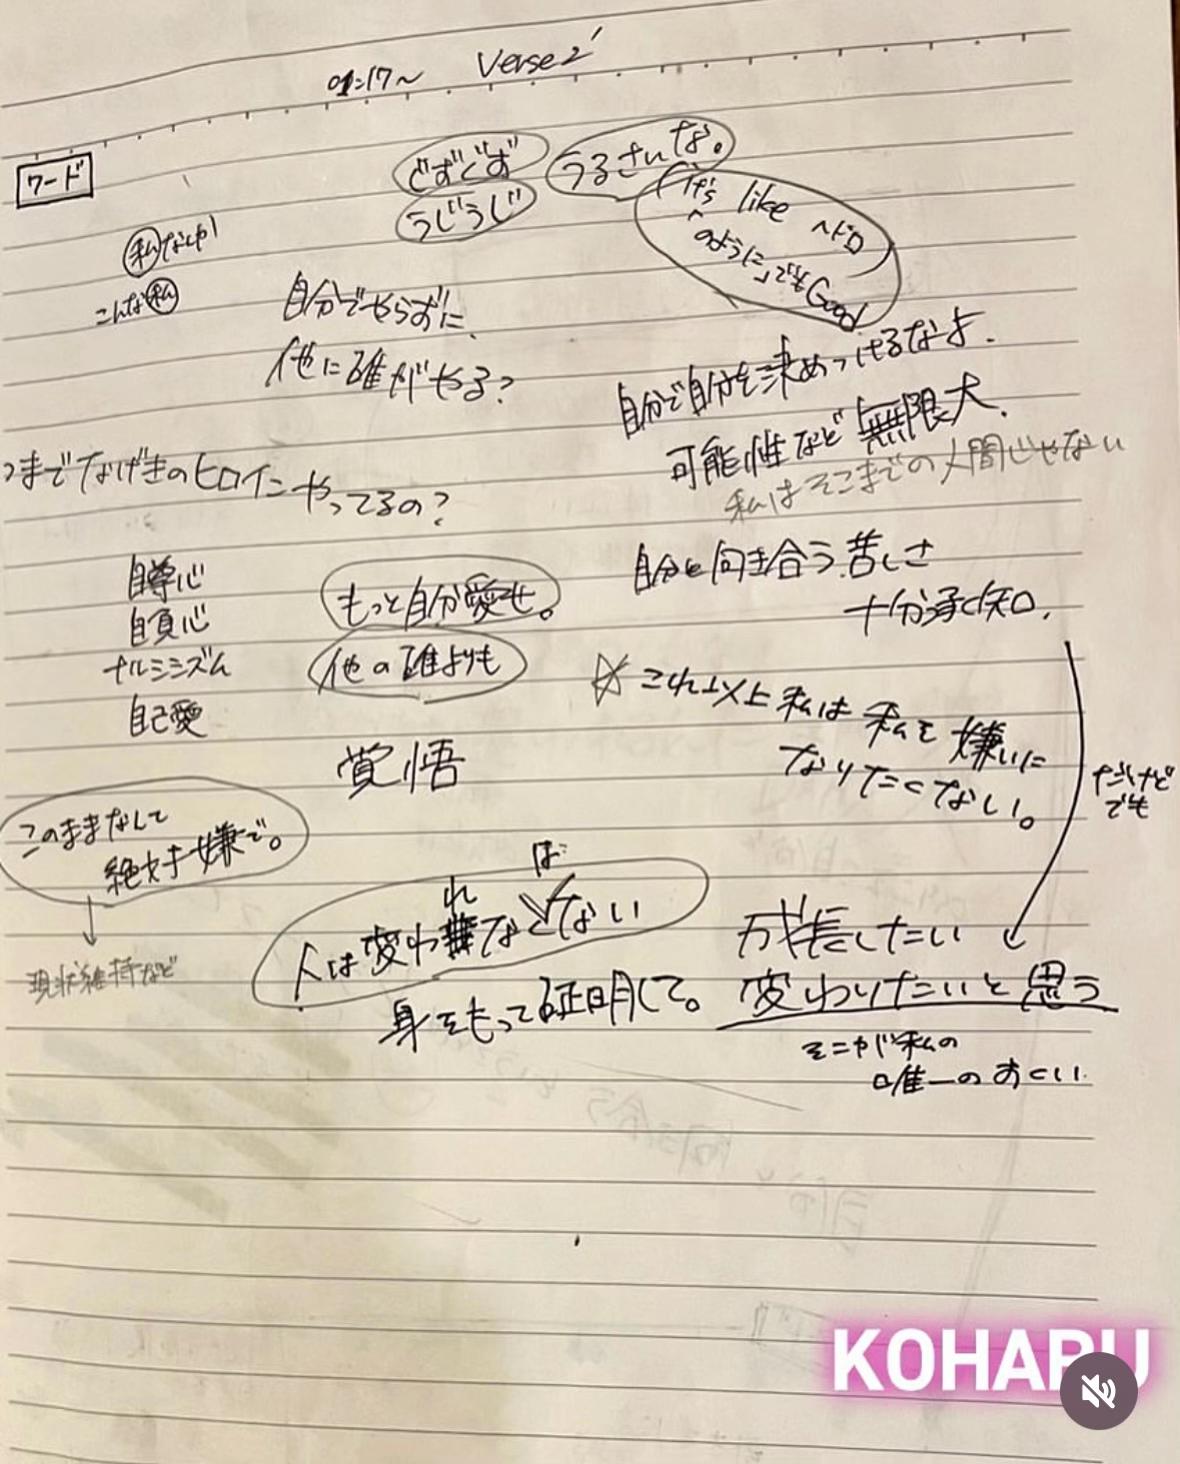 01:17〜 Verse2'
ワード
ぐずぐず
うじうじ
うるさいな。
(It's like ヘドロ)
「のように」でもGood
私なんか
こんな私
自分でやらずに
他に誰がやる?
自分で自分を決めつけるなよ.
可能性など無限大.
私はそこまでの人間じゃない
つまでなげきのヒロインやってるの?
自尊心
自負心
ナルシシズム
自己愛
もっと自分愛せ。
他の誰よりも
覚悟
自分と向き合う苦しさ
十分承知.
☆これ以上私は私を嫌いに
なりたくない。
だけど
でも
このままなんて
絶対嫌で。
現状維持など
ば
れ
人は変わなくない
身をもって証明して。
成長したい
変わりたいと思う
そこが私の
唯一のすくい
KOHARU